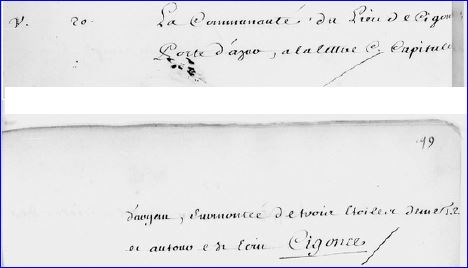 V. 20. La Communauté du Lieu de Cigon
Porte d'azur, a la lettre C Capitale
49
d'argent, surmontée de trois Etoiles de
et autour est Ecrit Cigonce